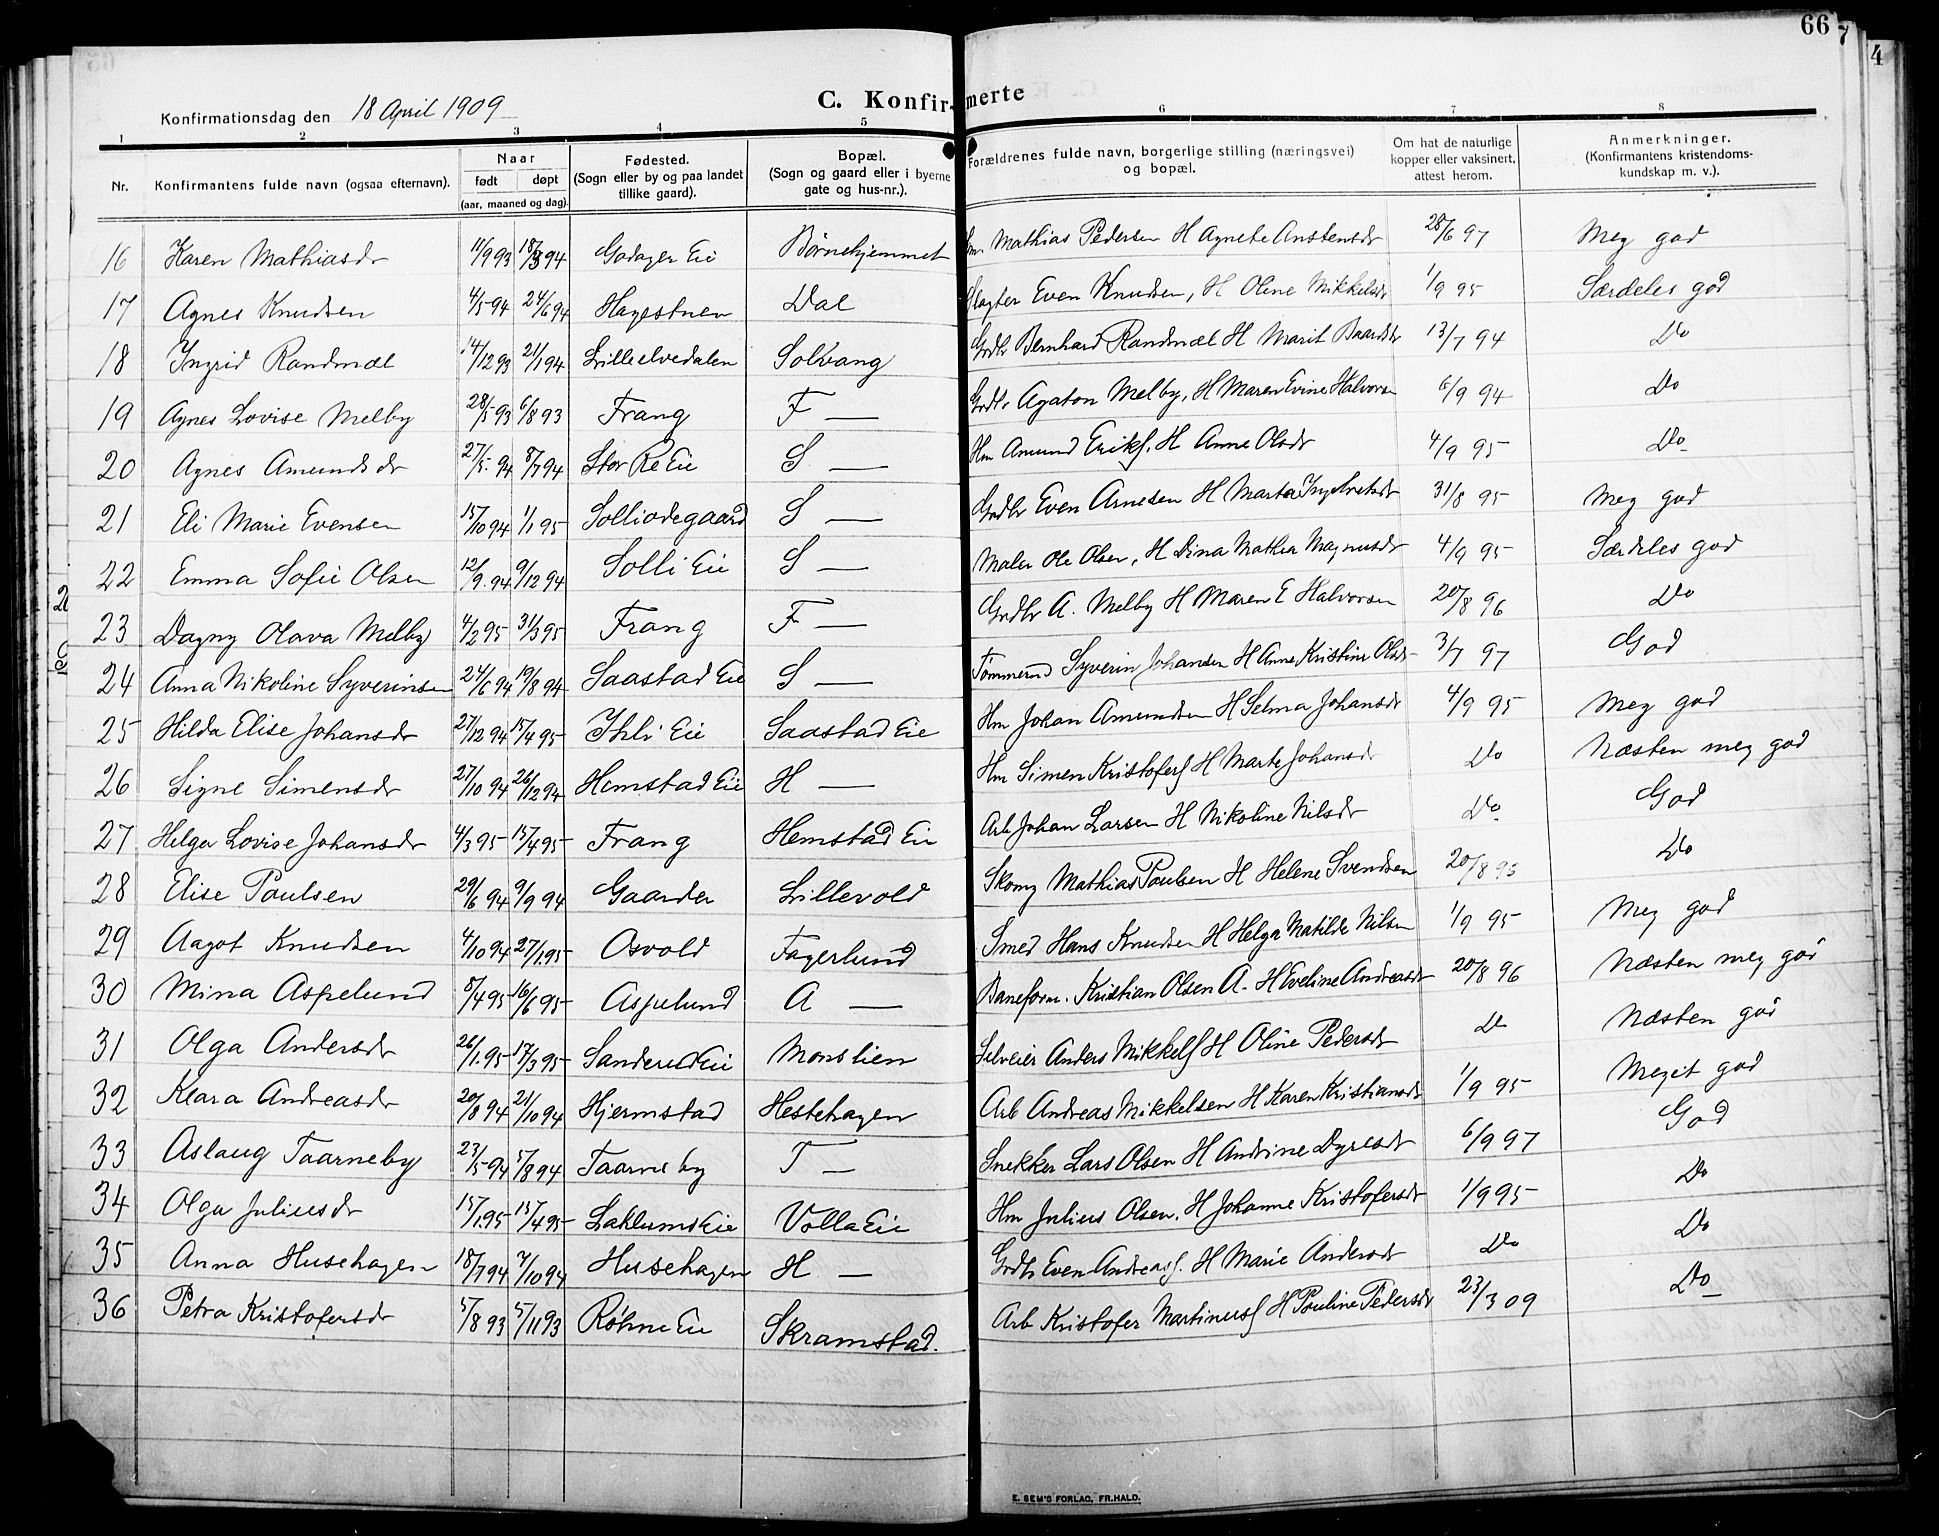 66
7
4
C. Konfirmerte
Konfirmationsdag den 18 April 1909
1 2 3 4 5 6 7 8
Nr.
Konfirmantens fulde navn (ogsaa efternavn).
Naar
født døpt
(aar, maaned og dag).
Fødested.
(Sogn eller by og paa landet
tillike gaard).
Bopæl.
(Sogn og gaard eller i byerne
gate og hus-nr.).
Forældrenes fulde navn, borgerlige stilling (næringsvei)
og bopæl.
Om hat de naturlige
kopper eller vaksinert,
attest herom.
Anmerkninger.
(Konfirmantens kristendoms-
kundskap m. v.)
16 Karen Mathiasdr 11/9 93 18/3 94 Godager Eie Børnehjemmet Hm. Mathias Pedersen H Agnete Anstensdr 28/6 97 Meg god
17 Agnes Knudsen 4/5 94 24/6 94 Hagestuen Dal Slagter Even Knudsen, H Oline Mikkelsdr 1/9 95 Særdeles god
18 Ingrid Randmæl 14/12 93 21/1 94 Lilleelvedalen Solvang Grdbr Bernhard Randmæl H Marit Baardsdr 13/7 94 Do
19 Agnes Lovise Melby 28/5 93 6/8 93 Frang F — Grdbr Agaton Melby, H Maren Evine Halvorsen 6/9 94 Do
20 Agnes Amundsdr 27/5 94 8/7 94 Stor Re Eie S — Hm Amund Eriks. H Anne Olsdr 4/9 95 Do
21 Eli Marie Evensen 15/10 94 1/1 95 Solliødegaard S — Grdbr Even Arnesen H Marte Ingebretsdr 31/8 95 Meg god
22 Emma Sofie Olsen 12/9 94 9/12 94 Solli Eie S — Maler Ole Olsen, H Dina Mathea Magnusdr 4/9 95 Særdeles god
23 Dagny Olava Melby 4/2 95 31/3 95 Frang F — Grdbr A. Melby H Maren E Halvorsen 20/8 96 Do
24 Anna Nikoline Syverinsen 24/6 94 19/8 94 Saastad Eie S — Tømmerm Syverin Johansen H Anne Kristine Olsdr 3/7 97 God
25 Hilda Elise Johansdr 27/12 94 15/4 95 Ihli Eie Saastad Eie Hm Johan Amundsen H Selma Johansdr 4/9 95 Meg god
26 Signe Simensdr 27/10 94 26/12 94 Hemstad Eie H — Hm Simen Kristofers H Marte Johansdr Do Næsten meg god
27 Helga Lovise Johansdr 4/3 95 15/4 95 Frang Hemstad Eie Arb Johan Larsen H Nikoline Nilsdr Do God
28 Elise Paulsen 29/6 94 9/9 94 Gaarder Lillevold Skomg Mathias Paulsen H Helene Svendsen 20/8 95 Do
29 Aagot Knudsen 4/10 94 27/1 95 Osvold Fagerlund Smed Hans Knudsen H Helga Matilde Nilsen 1/9 95 Meg god
30 Mina Aspelund 8/4 95 16/6 95 Aspelund A — Baneform. Kristian Olsen A. H Eveline Andreasdr 20/8 96 Næsten meg god
31 Olga Andersdr 26/1 95 17/3 95 Sanderud Eie Monslien Selveier Anders Mikkels H Oline Pedersdr Do Næsten god
32 Klara Andreasdr 20/8 94 21/10 94 Hjermstad Hestehagen Arb Andreas Mikkelsen H Karen Kristiansdr 1/9 95 Meget god
33 Aslaug Taarneby 23/5 94 5/8 94 Taarneby T — Snekker Lars Olsen H Andrine Dyresdr 6/9 97 God
34 Olga Juliusdr 15/1 95 15/4 95 Laklums Eie Volla Eie Hm Julius Olsen. H Johanne Kristofersdr 1/9 95 Do
35 Anna Husehagen 18/7 94 7/10 94 Husehagen H — Grdbr Even Andreass. H Marie Andersdr Do Do
36 Petra Kristofersdr 5/8 93 5/11 93 Røhne Eie Skramstad. Arb Kristofer Martinus H Pauline Pedersdr 23/3 09 Do
E. SEM'S FORLAG, FR.HALD.